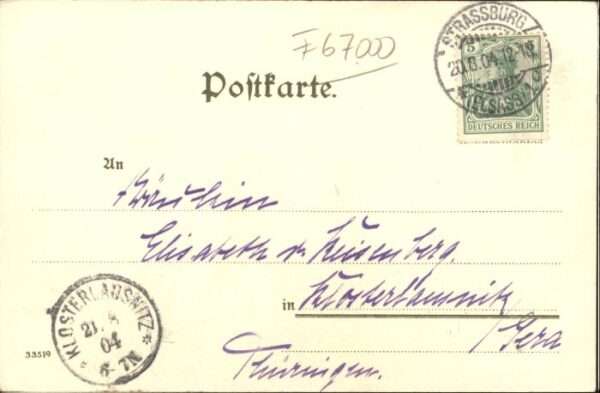 F 67.000
STRASSBURG
20.8.04.12-1N
(ELSASS)
5
DEUTSCHES REICH
Postkarte.
An
Fräulein
Elisabeth v.
in Klosterlausnitz
/Gera
Thüringen.
KLOSTERLAUSNITZ
21. 8
04
6-7N
33519